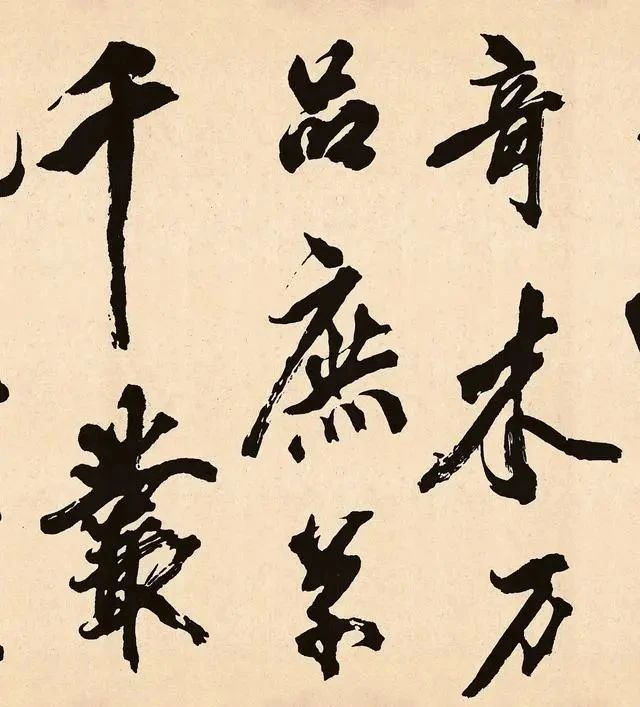 竒木万
品庶草
千叢